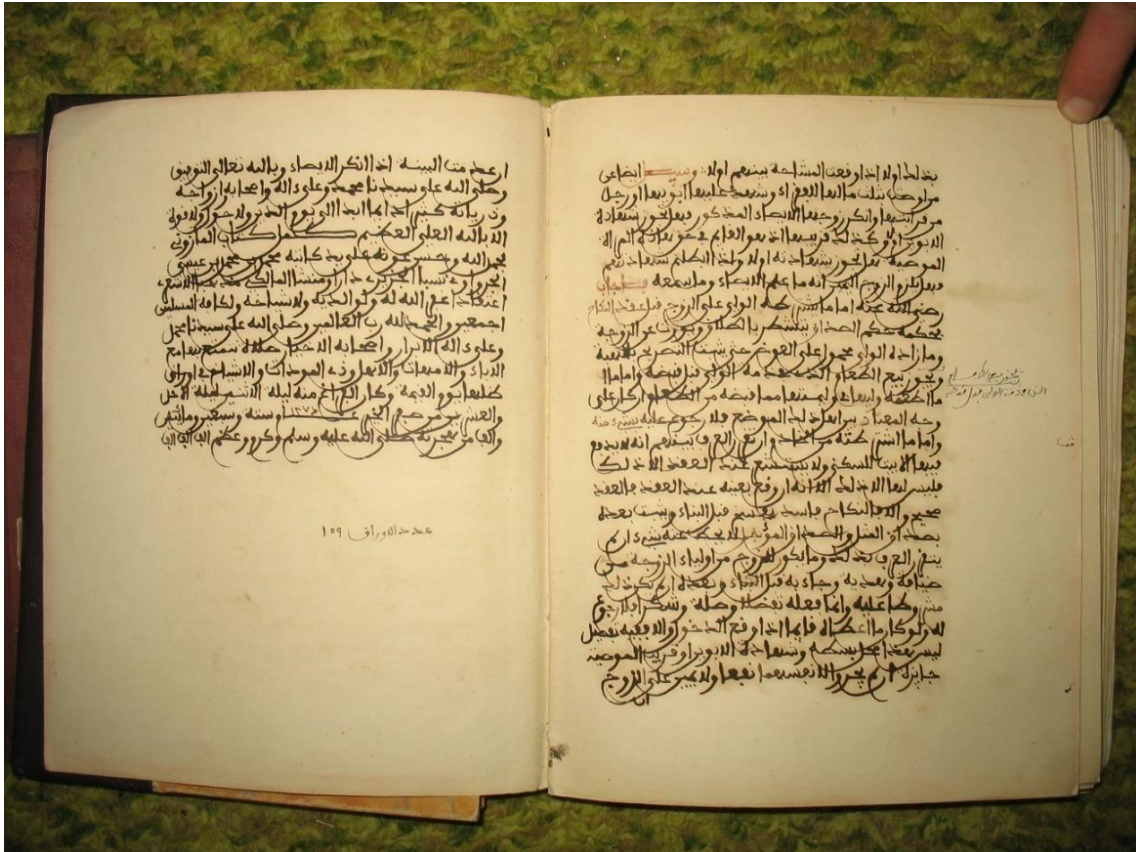 بذلك اولا اذا وقعت المشاحة بينهم اولا وسئل ايضا عن
من اوصت بثلث مالها للفقراء وشهد عليها ابويها او رجل
من قرابتها وانكر زوجها الايصاء المذكور فهل تجوز شهادة
الابوين او وكذلك قريبها اذ هو القائم في حق هذه المراة
الموصية هل تجوز شهادته اولا واذا بطلت شهادتهم
فهل يلزم الزوج اليمين انه ما علم الايصاء وما سمعه فاجاب
رضي الله عنه اما ما اشترطه الولي على الزوج قبل عقد النكاح
فحكمه حكم الصداق يتشطر بالطلاق ويورث عن الزوجة
وما زاده الولي محمول على العوض حتى يثبت التصريح بالهبة
ويجوز بيع الطعام الذي يقدمه الولي قبل قبضه واما ما
اطعمه وليها وليمتها مما قبضه من الطعام ان كان على
وجه المعتاد بين اهل ذلك الموضع فلا رجوع عليه بشيء منه
واما ما اشترطته من اتخاذ دار العرف بينهم انه لا يدفع
فيها الا بيتا للسكنى ولا يستشنع عند العقد الا ذلك
فليس لها الا ذلك الا انه ان وقع بعينه عند العقد فالعقد
صحيح والا فالنكاح فاسد يفسخ قبل البناء ويثبت بعده
بصداق المثل والصداق المؤجل لا يحط عنه شيء ان لم
ينقص العرف بذلك وما يكون للزوج من اولياء الزوجة من
ضيافة وهدية وجاء به قبل البناء وبعده ان لم يكن ذلك
مشروطا عليه وانما فعله تفضلا وصلة وشكرا فلا رجوع
له ولو كان ما اعطاه قائما اذا وقع الدخول والا ففيه تفصيل
ليس هذا محل بسطه وشهادة الابوين او قريب الموصية
جايزة ان لم يجروا لانفسهما نفعا ولا يمين على الزوج
ان
ان عدمت البينة اذا انكر الايصاء وبالله تعالى التوفيق
وصلى الله على سيدنا محمد وعلى ءاله واصحابه وازواجه
وذرياته كثيرا دايما ابدا الى يوم الدين ولا حول ولا قوة
الا بالله العلي العظيم كمل كتاب المازوني
بحمد الله وحسن عونه على يد كاتبه محمد بن محمد بن عيسى
نسبا الجزيري دارا ومنشئا المالكي مذهبا الاشعري
اعتقادا غفر الله له ولوالديه ولاشياخه ولكافة المسلمين
اجمعين والحمد لله رب العالمين وصلى الله على سيدنا محمد
وعلى ءاله الابرار واصحابه الاخيار صلاة ننتفع بها مع
الاباء والامهات والاهل وذوي المودات والاشياخ في اوراق
كلها يوم القيمة وكان الفراغ منه ليلة الاثنين ليلة الاحد
والعشرين من صفر الخير عام ١٢٧٦ ستة وسبعين ومائتين
والف من هجرته صلى الله عليه وسلم وكرم وعظم
عدد الاوراق ١٥٩